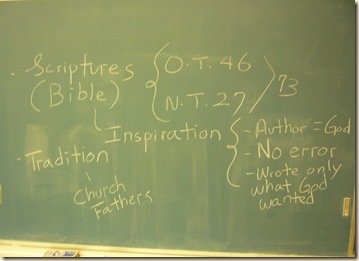 · Scriptures
(Bible)
O.T. 46
N.T. 27
73
Inspiration
- Author = God
- No error
- Wrote only
what God
wanted
· Tradition
Church
Fathers